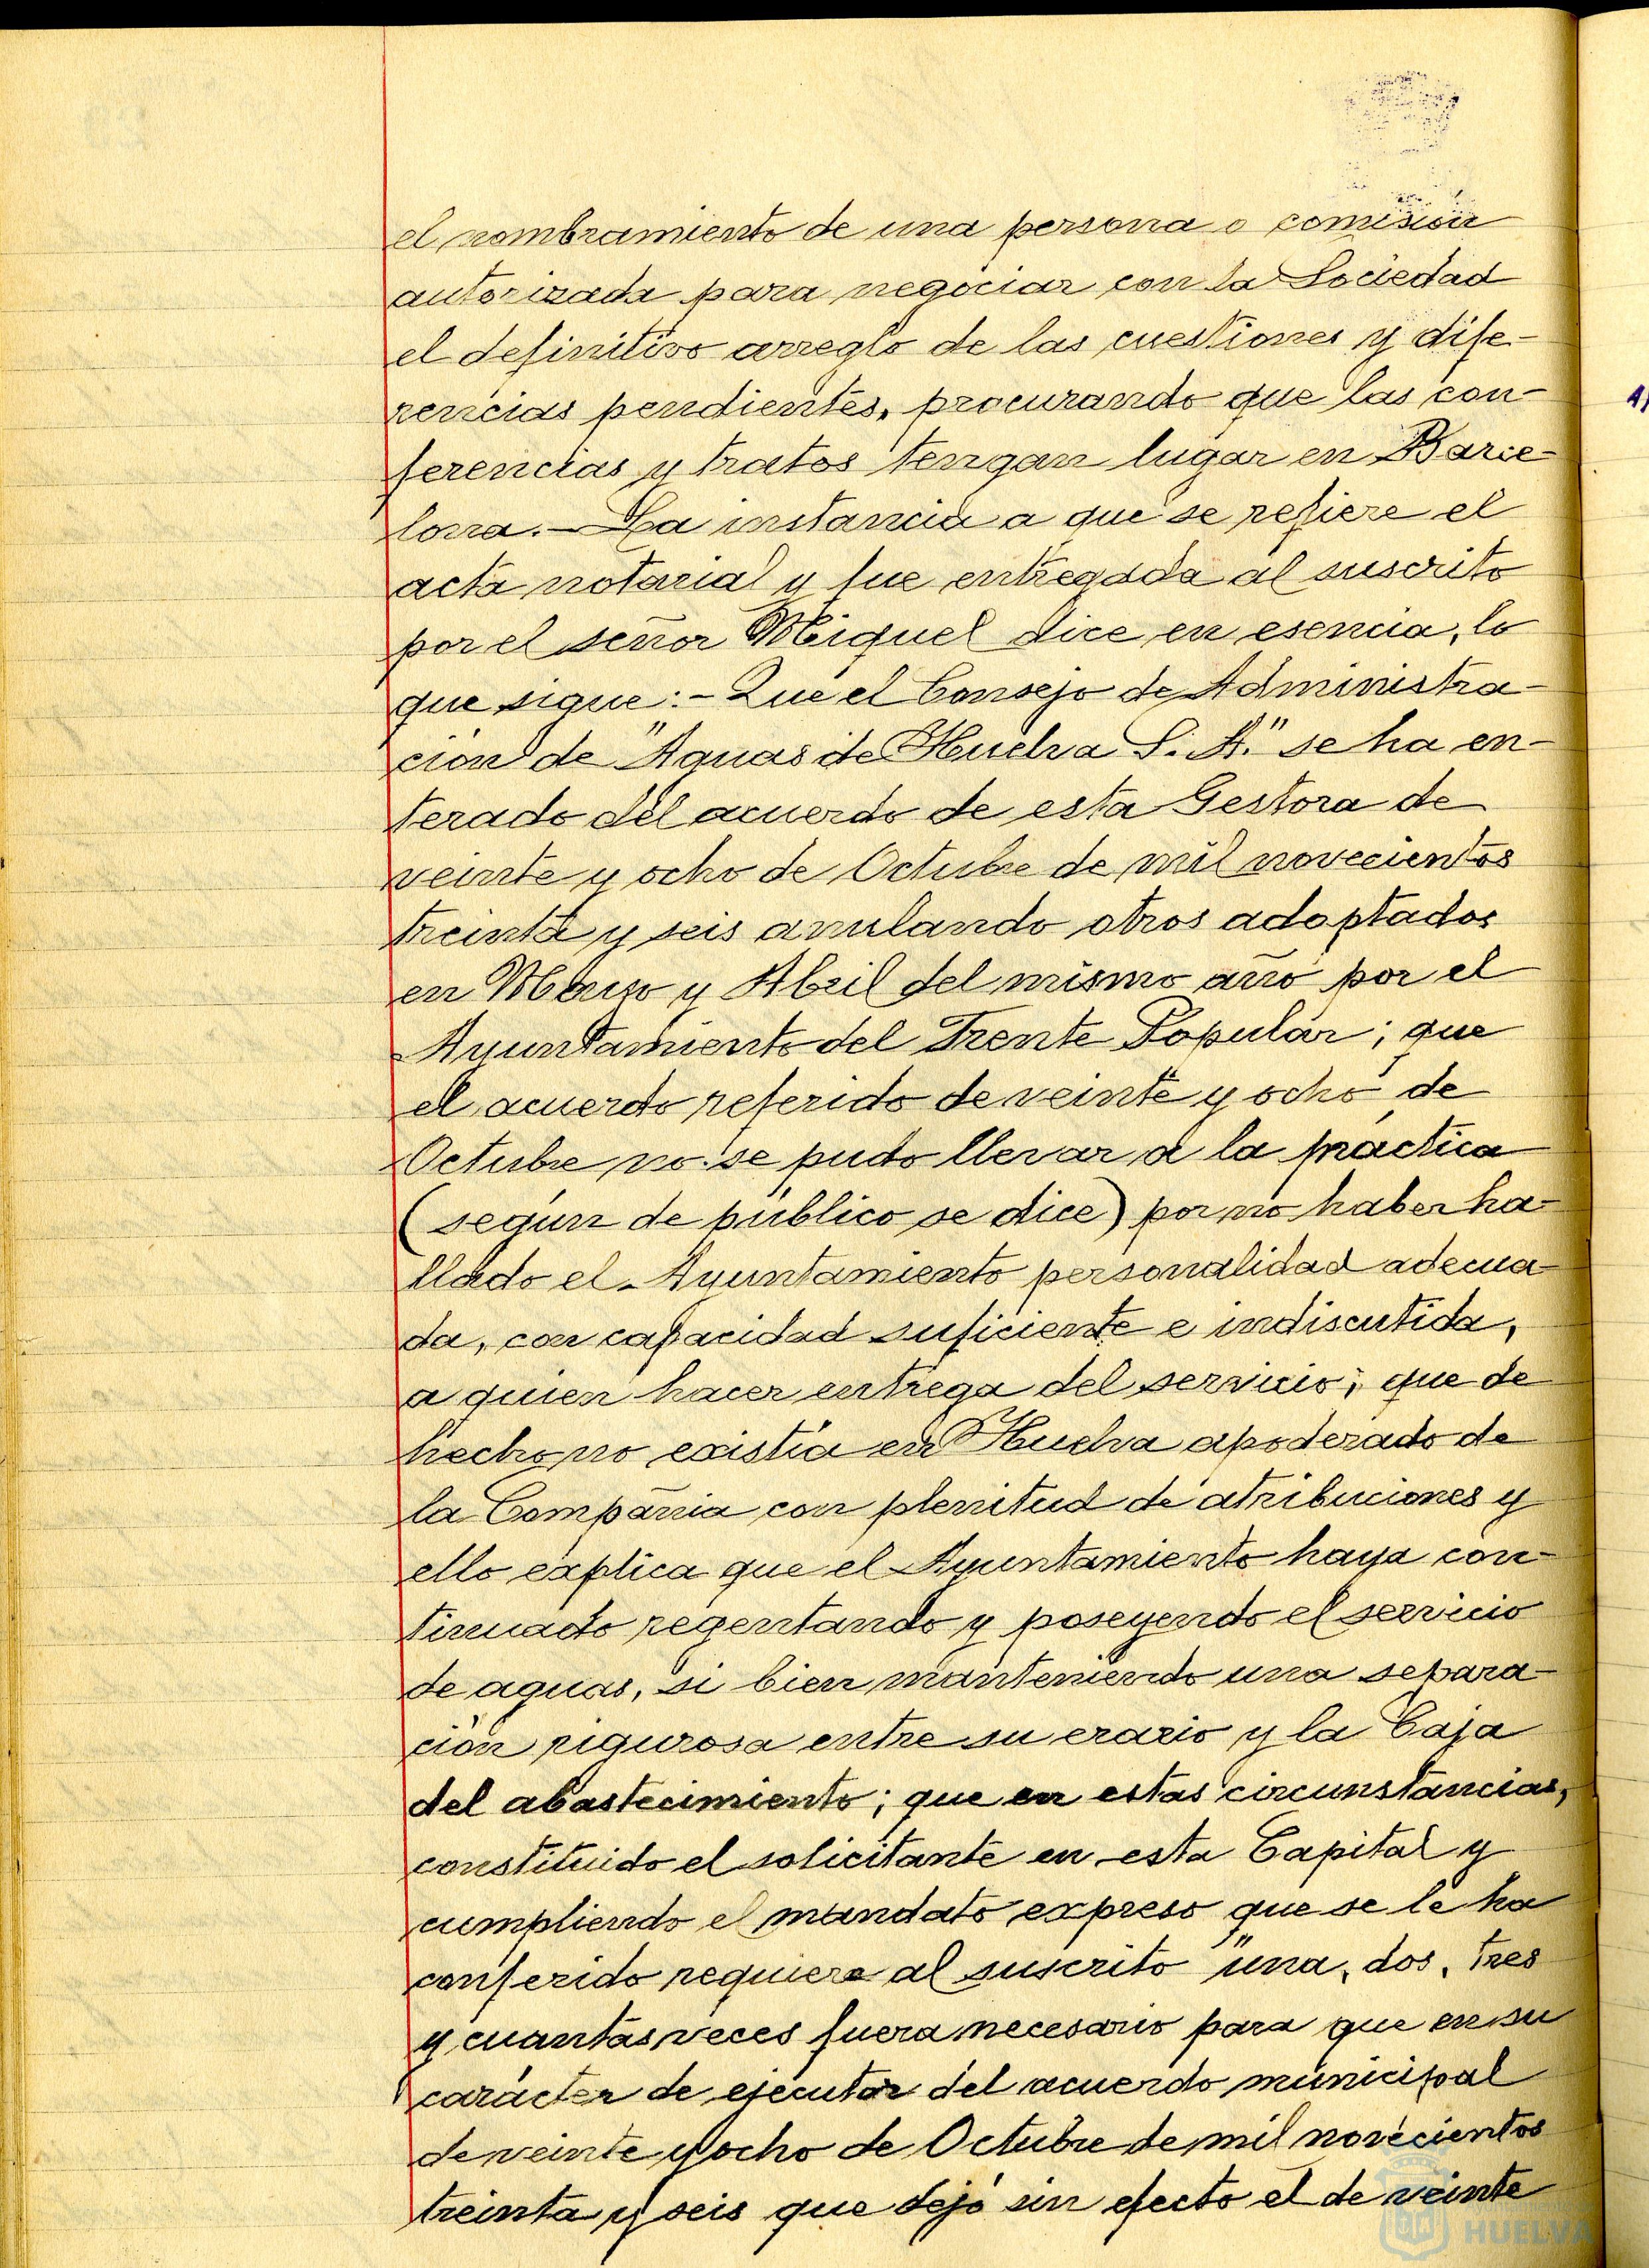 el nombramiento de una persona o comisión
autorizada para negociar con la Sociedad
el definitivo arreglo de las cuestiones y dife-
rencias pendientes, procurando que las con-
ferencias y tratos tengan lugar en Barce-
lona.- La instancia a que se refiere el
acta notarial y fue entregada al suscrito
por el señor Miquel dice en esencia, lo
que sigue:- Que el Consejo de Administra-
ción de "Aguas de Huelva S. A." se ha en-
terado del acuerdo de esta Gestora de
veinte y ocho de Octubre de mil novecientos
treinta y seis anulando otros adoptados
en Marzo y Abril del mismo año por el
Ayuntamiento del Frente Popular; que
el acuerdo referido de veinte y ocho de
Octubre no se pudo llevar a la práctica
(según de público se dice) por no haber ha-
llado el Ayuntamiento personalidad adecua-
da, con capacidad suficiente e indiscutida,
a quien hacer entrega del servicio; que de
hecho no existía en Huelva apoderado de
la Compañia con plenitud de atribuciones y
ello explica que el Ayuntamiento haya con-
tinuado regentando y poseyendo el servicio
de aguas, si bien manteniendo una separa-
ción rigurosa entre su erario y la Caja
del abastecimiento; que en estas circunstancias,
constituido el solicitante en esta Capital y
cumpliendo el mandato expreso que se le ha
conferido requiere al suscrito "una, dos, tres
y cuantas veces fuera necesario para que en su
carácter de ejecutor del acuerdo municipal
de veinte y ocho de Octubre de mil novecientos
treinta y seis que dejó sin efecto el de veinte
HUELVA